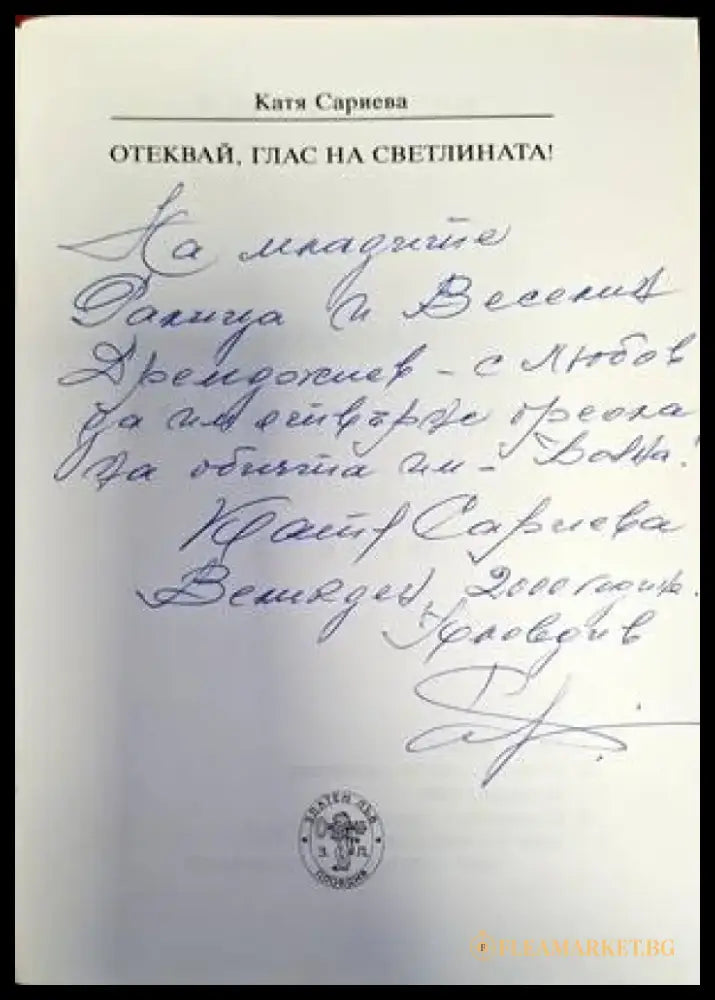 Катя Сариева
ОТЕКВАЙ, ГЛАС НА СВЕТЛИНАТА!
На младите
Ралица и Веселин
Дремджиев – с любов
да им
на обичта им –
Катя Сариева
Великден, 2000 година.
Пловдив
ЗЛАТЕН ЛЪВ
З. П.
ПЛОВДИВ
FLEAMARKET.BG